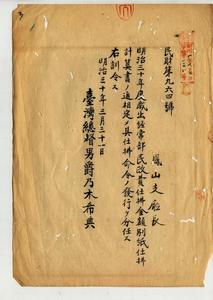 民財第九六四號
鳳山支廳長
明治三十年度歲出經常部民政費仕拂金額別紙仕拂
計算書ノ通相定メ具仕拂命令ノ發行ヲ分任ス
右訓令ス
明治三十年三月三十一日
臺灣總督男爵乃木希典